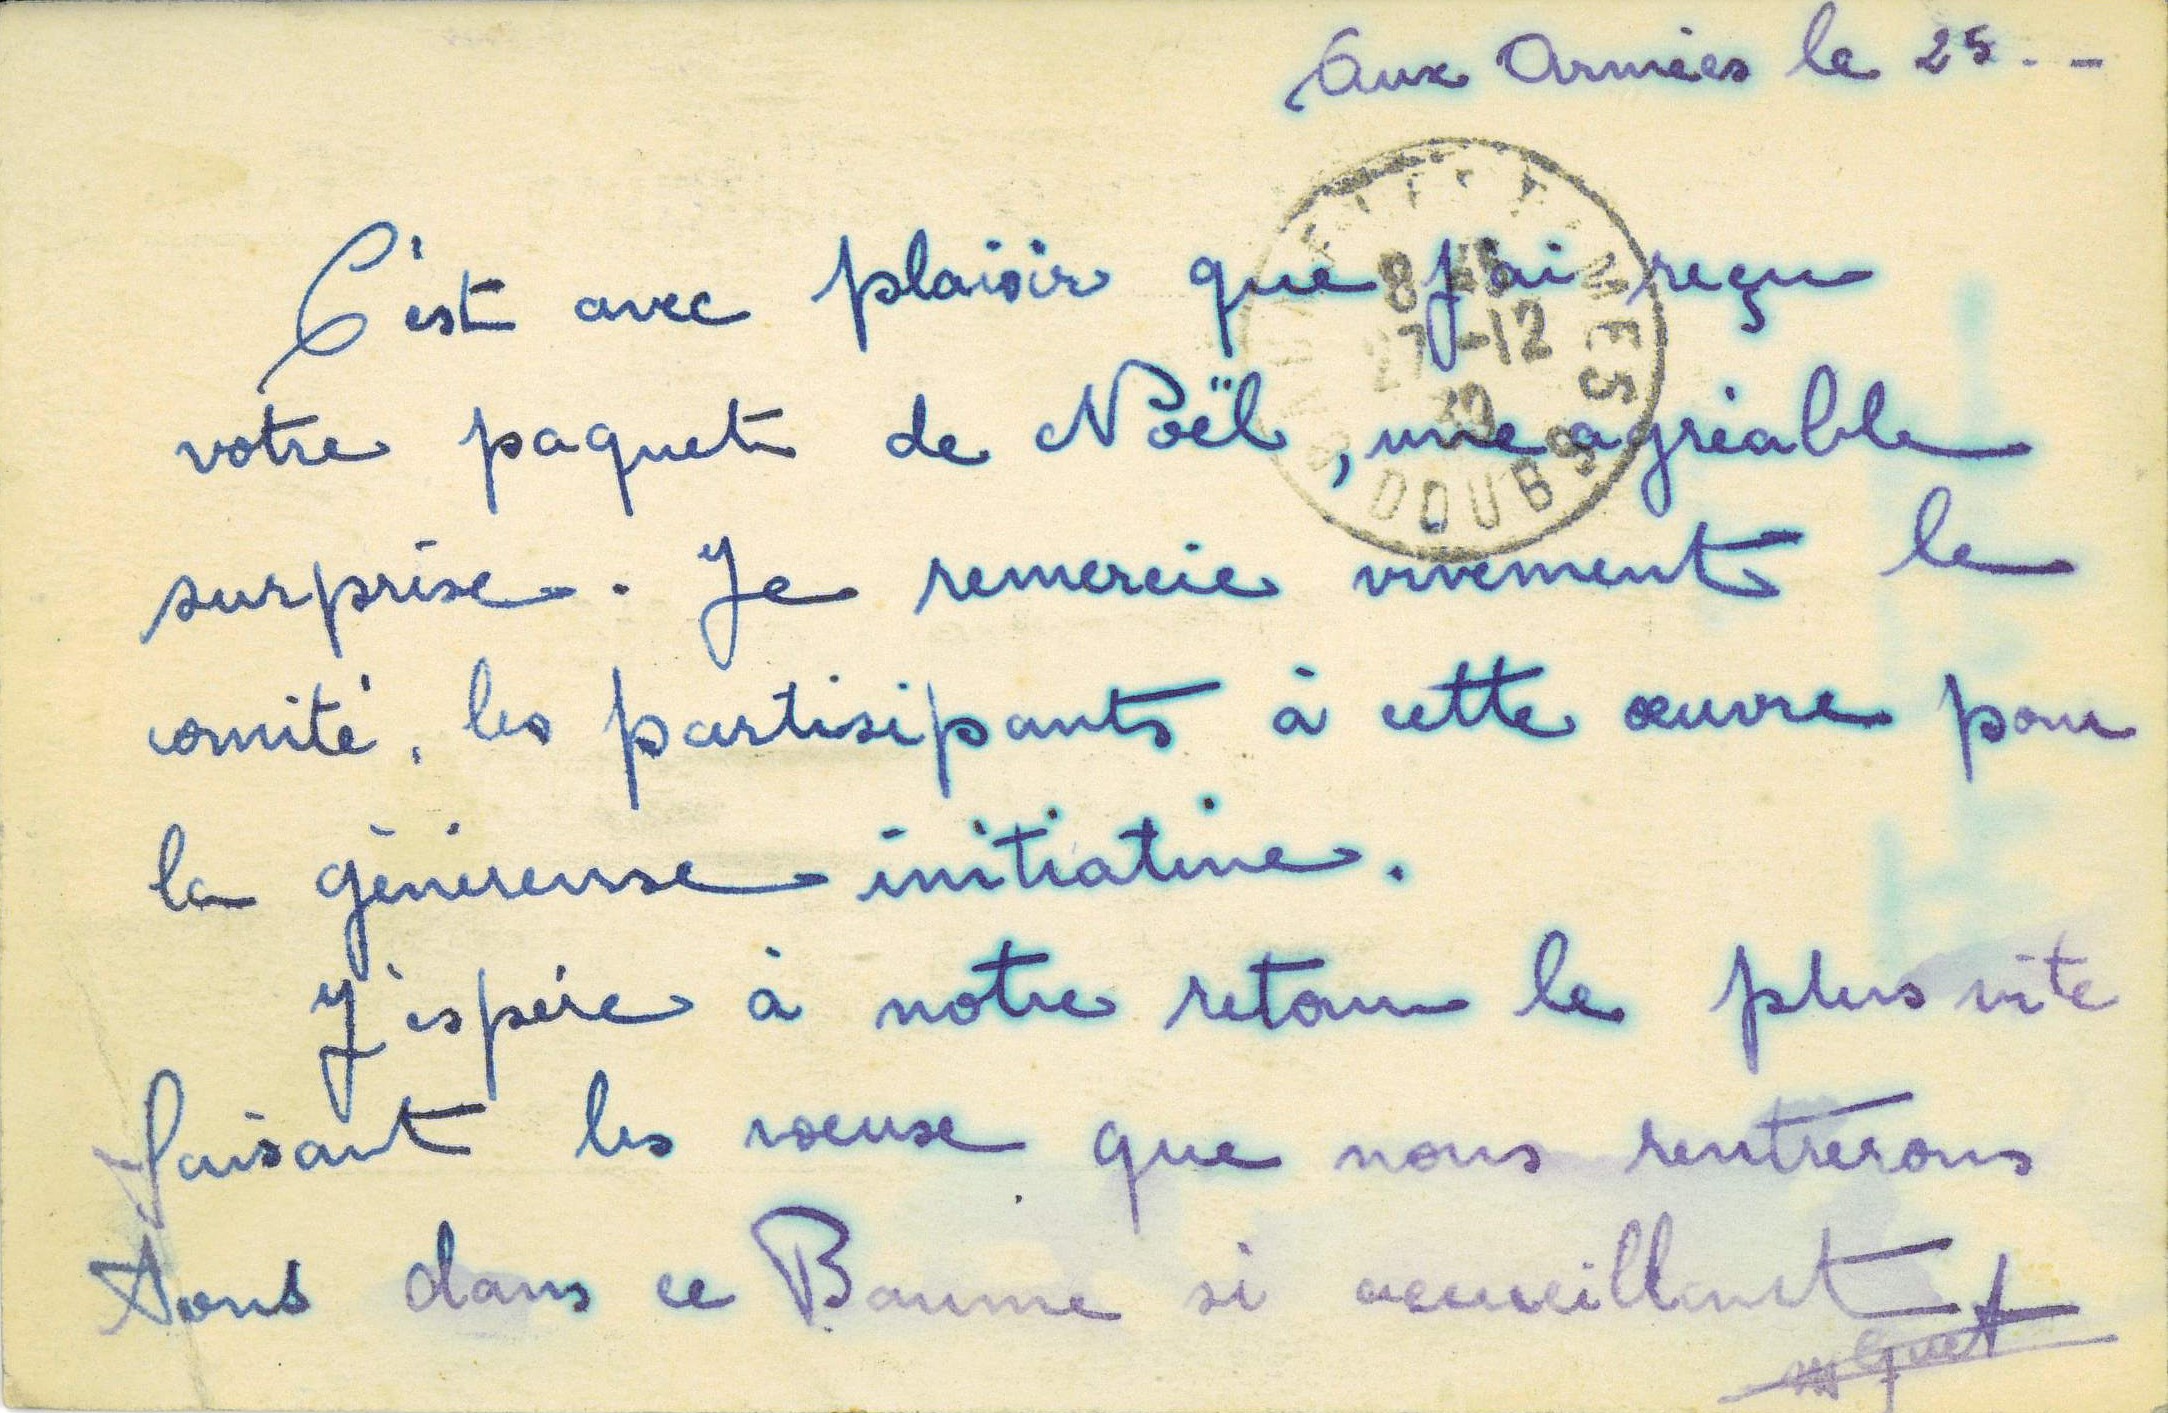 Aux Armées le 25. -
C'est avec plaisir que j'ai reçu
votre paquet de Noël, une agréable
surprise. Je remercie vivement le
comité, les partisipants à cette œuvre pour
la généreuse initiative.
J'espère à notre retour le plus vite
faisant les voeux que nous rentrerons
tous dans ce Baume si accueillant
8 45
27-12
39
BAUME-LES-DAMES
DOUBS